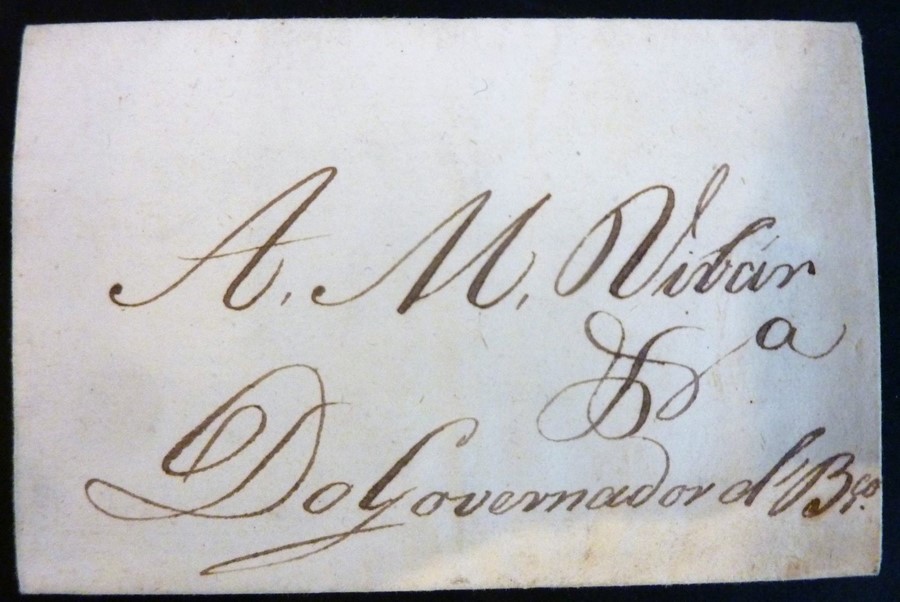 A. M. Vibár
&a
Do Governador d' Bço.